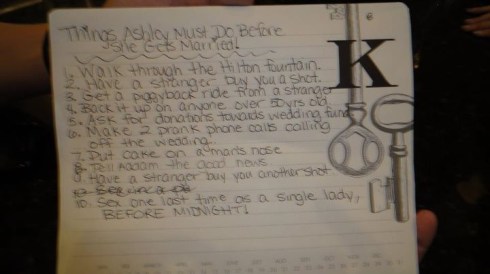 Things Ashley Must Do Before
She Gets Married!
K
1. Walk through the Hilton fountain.
2. Have a stranger buy you a shot.
3. Get a piggyback ride from a stranger
4. Back it up on anyone over 50 yrs old
5. Ask for donations towards wedding fund
6. Make 2 prank phone calls calling
off the wedding...
7. Put cake on a man's nose
8. Tell Addam the good news
9. Have a stranger buy you another shot
10. Sex one last time as a single lady,
BEFORE MIDNIGHT!